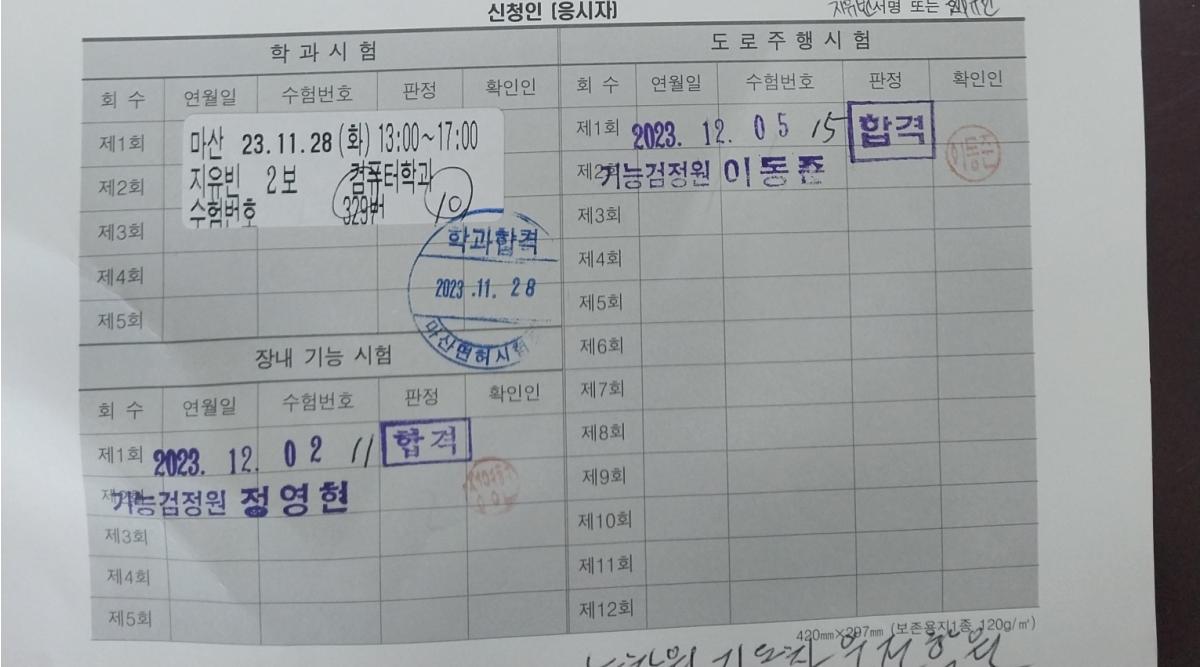 신청인 (응시자)
지유빈 서명 또는
학 과 시 험
회 수 연월일 수험번호 판정 확인인
제1회
제2회
제3회
제4회
제5회
마산 23.11.28 (화) 13:00~17:00
지유빈 2보 컴퓨터학과
수험번호 329번 10
학과합격
2023 .11. 28
마산면허시험
장내 기능 시험
회 수 연월일 수험번호 판정 확인인
제1회 2023. 12. 02 11 합격
기능검정원 정영현
제3회
제4회
제5회
도 로 주 행 시 험
회 수 연월일 수험번호 판정 확인인
제1회 2023. 12. 05 15 합격
이동준
제2회 기능검정원 이동준
제3회
제4회
제5회
제6회
제7회
제8회
제9회
제10회
제11회
제12회
420㎜×297㎜ (보존용지1종 120g/㎡)